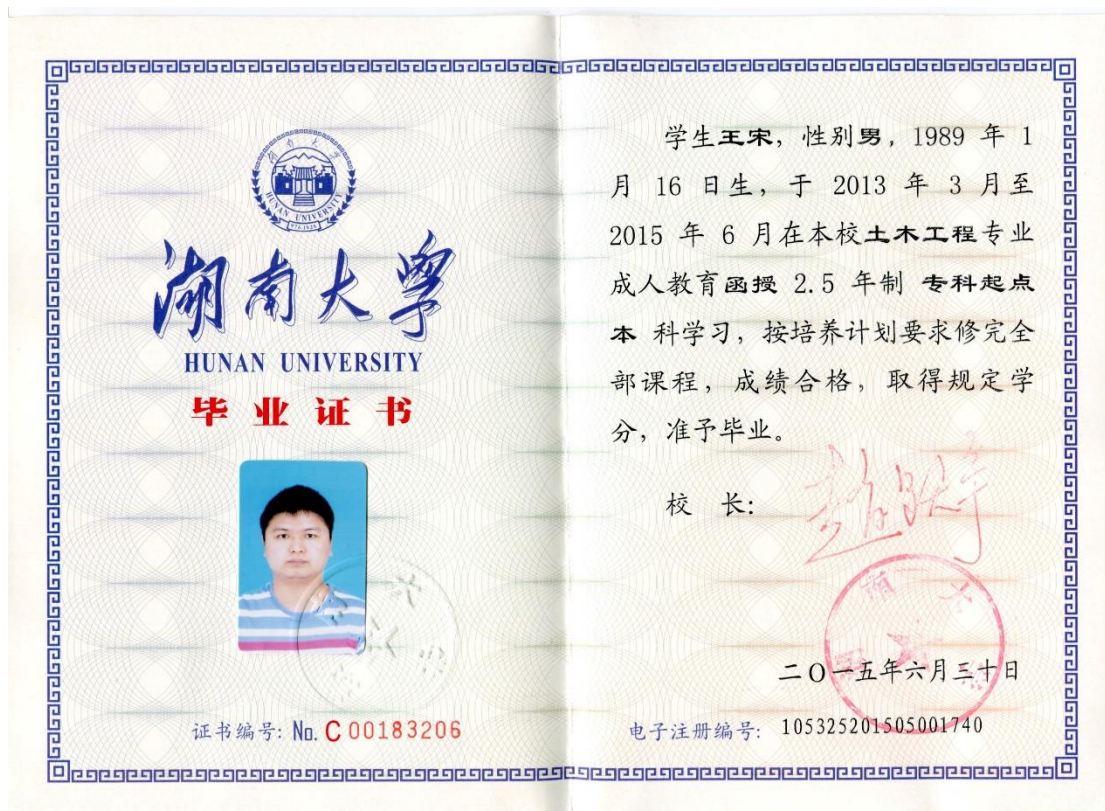 湖南大学
HUNAN UNIVERSITY
1926
湖南大学
HUNAN UNIVERSITY
毕业证书
证书编号: No. C 00183206
学生王宋，性别男，1989 年 1
月 16 日生，于 2013 年 3 月至
2015 年 6 月在本校土木工程专业
成人教育函授 2.5 年制 专科起点
本 科学习，按培养计划要求修完全
部课程，成绩合格，取得规定学
分，准予毕业。
校 长:
二〇一五年六月三十日
电子注册编号: 105325201505001740